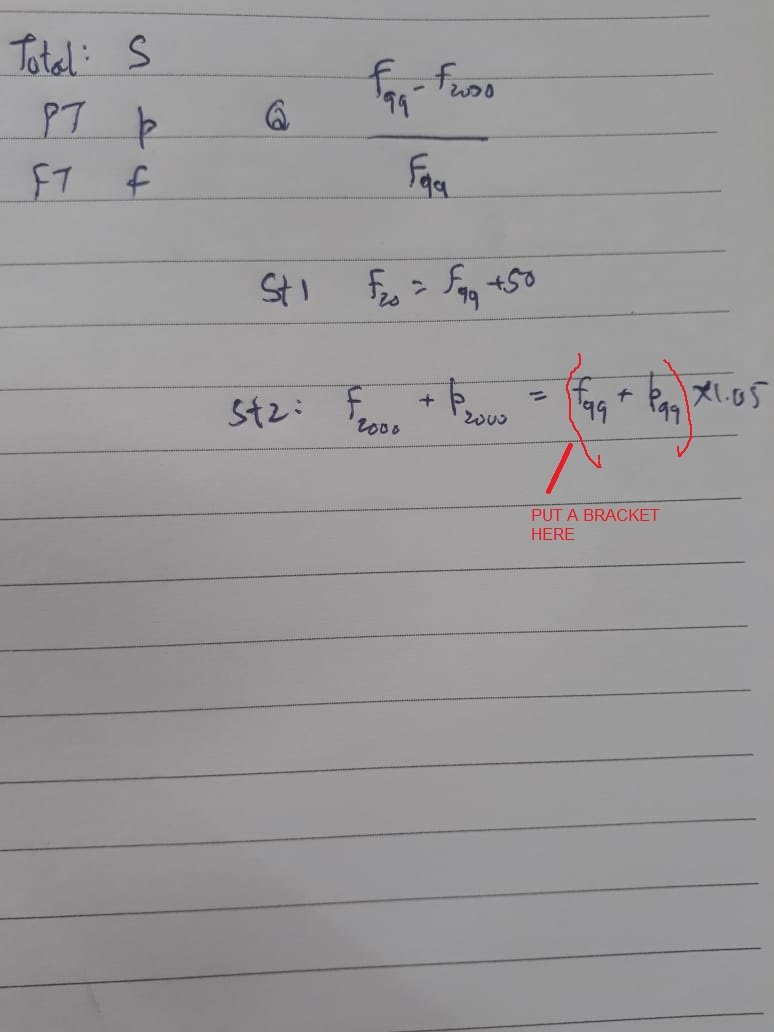 Total: S
PT p Q f99 - f2000
FT f f99
St1 f20 = f99 +50
St2: f2000 + p2000 = (f99 + p99) ×1.05
PUT A BRACKET
HERE